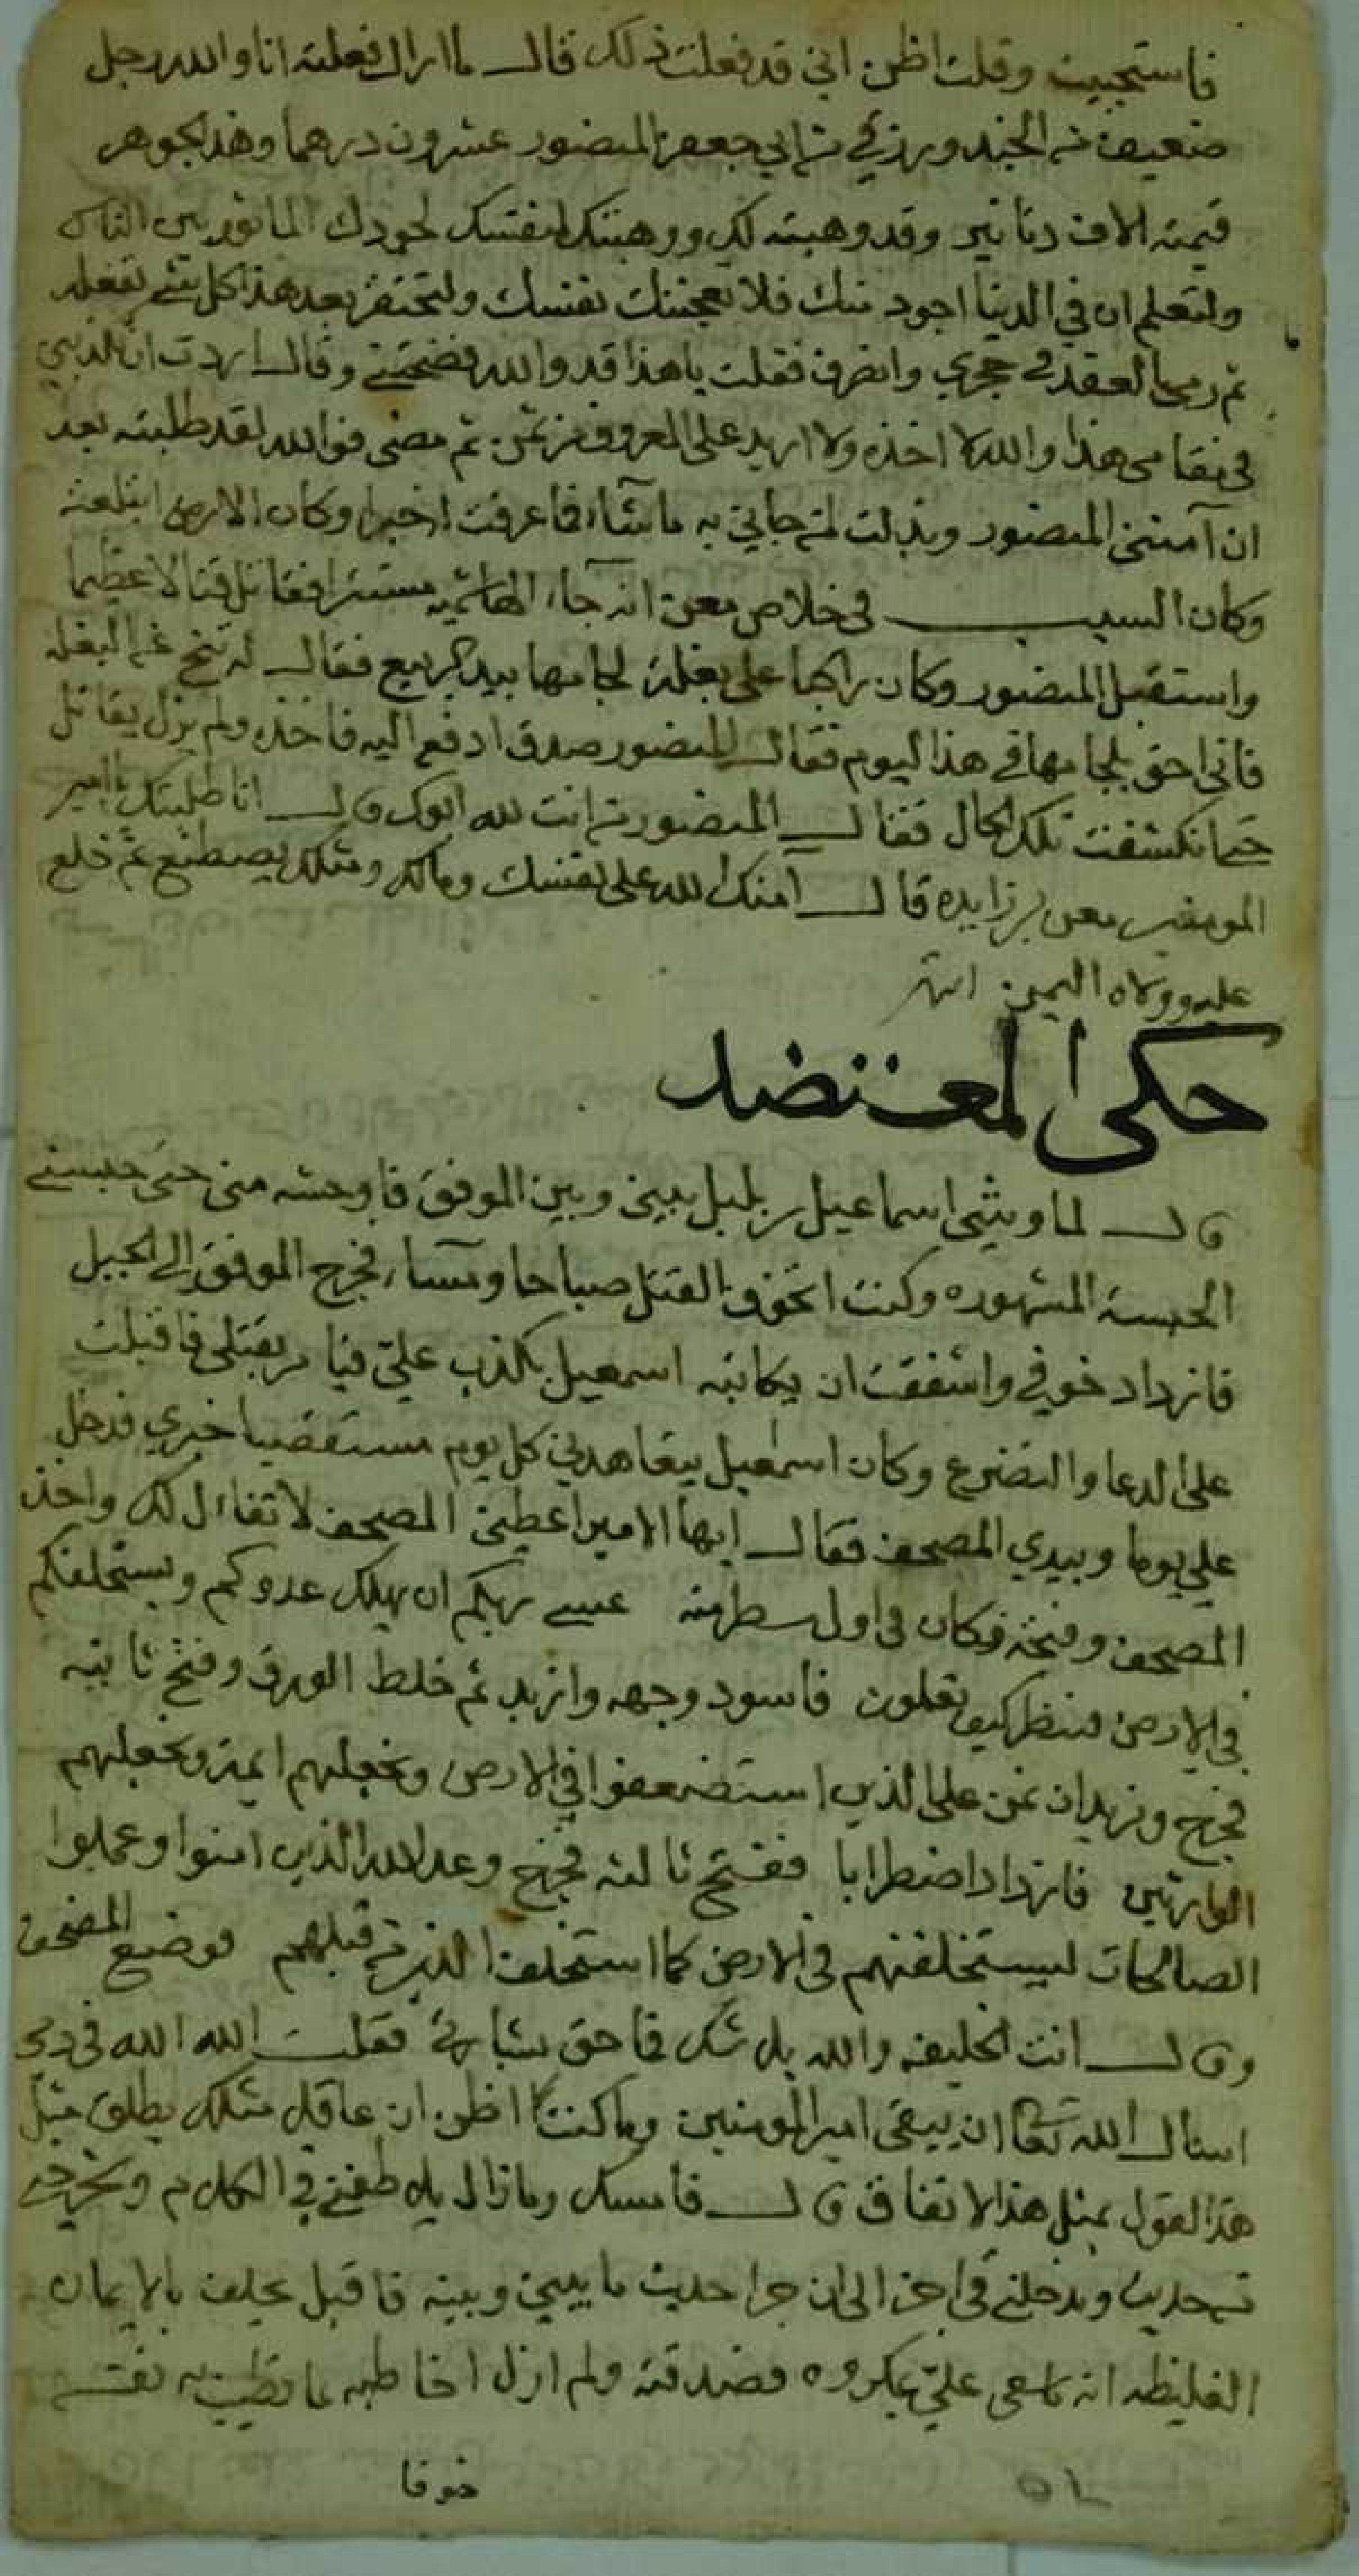 فاستحييت وقلت اظن اني قد فعلت ذلك قال ما اراك فعلته انا والله رجل
ضعيف من الجند ورزقي من ابي جعفر المنصور عشرون درهما وهذا الجوهر
قيمته الاف دنانير وقد وهبته لك ووهبتك لنفسك لجودك الماثور بين الناس
ولتعلم ان في الدنيا اجود منك فلا تعجبنك نفسك ولتحتقر بعد هذا كل شي تفعله
ثم رمى العقد في حجري وانصرف فقلت يا هذا قد والله فضحتني وقال اردت ان
في مقامي هذا والله لا اخذه ولا اريد على المعروف من ثمن ثم مضى فوالله لقد طلبته بعد
ان آمنني المنصور وبذلت لمن جاني به ماشاء فما عرفت له خبرا وكان الارض ابتلعته
وكان السبب في خلاص معن انه جاء الهاشميه مستترا فقاتل قتالا عظيما
واستقبل المنصور وكان راكبا على بغلة لجامها بيد الربيع فقال له تنح عن البغله
فاني احق بلجامها في هذا اليوم فقال المنصور صدق ادفع اليه فاخذه ولم يزل يقاتل
حتى انكشفت تلك الحال فقال المنصور من انت لله ابوك قال انا طلبتك يا امير
المومنين معن بن زايده قال آمنك الله على نفسك ومالك ومثلك يصطنع ثم خلع
عليه وولاه اليمن انتهى
حكى المعتضد
قال لما وشى اسماعيل بن بلبل بيني وبين الموفق فاوحشه مني حتى حبسني
الحبسة المشهوره وكنت اتخوف القتل صباحا ومساء فخرج الموفق الى الجبل
فازداد خوفي واشفقت ان يكاتبه اسمعيل بكذب علي فيامر بقتلي فاقبلت
على الدعا والتضرع وكان اسمعيل يتعاهدني كل يوم مستقصيا خبري فدخل
علي يوما وبيدي المصحف فقال ايها الامير اعطيني المصحف لاتفاال لك واخذ
المصحف وفتحه فكان في اول سطر منه عسى ربكم ان يهلك عدوكم ويستخلفكم
في الارض فينظر كيف تعلون فاسود وجهه واربد ثم خلط الورق وفتح ثانيه
فخرج ونريد ان نمن على الذين استضعفوا في الارض ونجعلهم ايمة ونجعلهم
الوارثين فازداد اضطرابا ففتح ثالثه فخرج وعد الله الذين امنوا وعملوا
الصالحات ليستخلفنهم في الارض كما استخلف الذين من قبلهم فوضع المصحف
وقال انت الخليفه والله بلا شك فما حق بشارتي فقلت الله الله في دمي
اسال الله تعالى ان يبقي امير المومنين وما كنت اظن ان عاقل مثلك يطلق مثل
هذا القول بمثل هذا الاتفاق قال فامسك وما زال يلاطفني في الكلام ويخرجني
من حديث ويدخلني في اخر الى ان جرا حديث ما بيني وبينه فاقبل يحلف بالايمان
الغليظه انه ما سعى علي بمكروه فصدقته ولم ازل اخاطبه بما تطيب به نفسه
خوفا